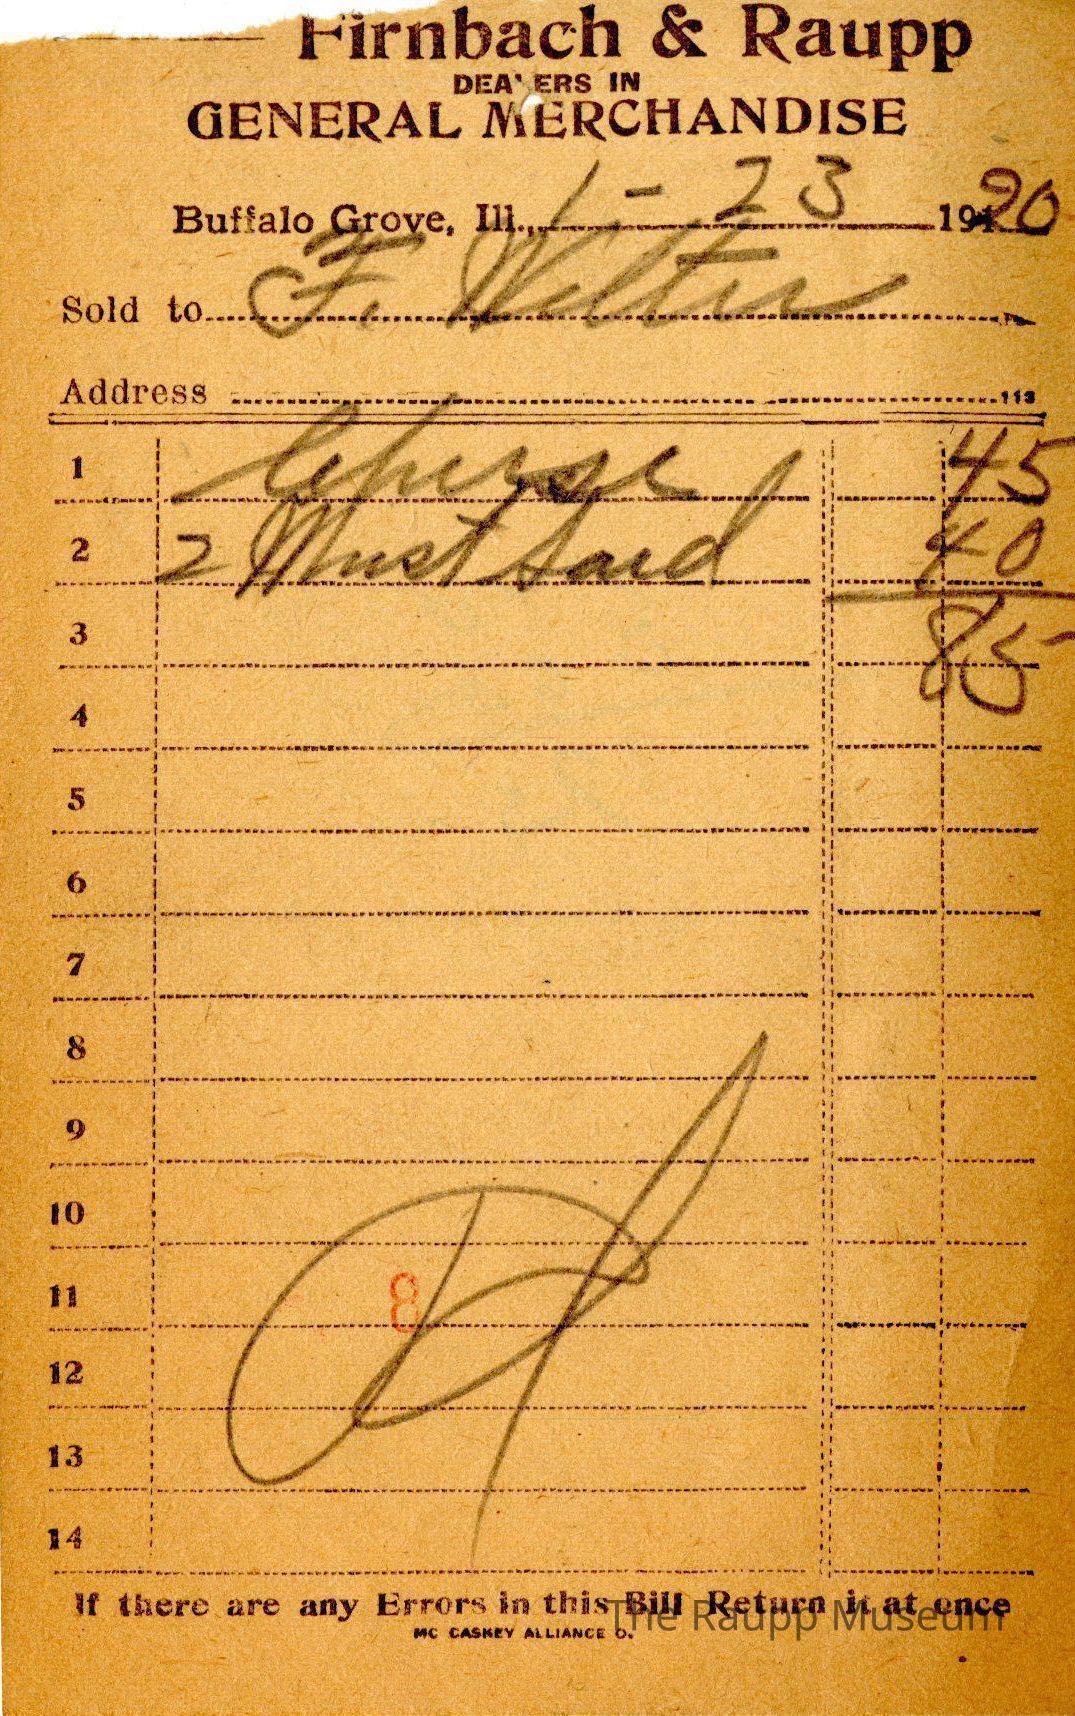 Firnbach & Raupp
DEALERS IN
GENERAL MERCHANDISE
Buffalo Grove, Ill., 1-23 1920
Sold to F. Welter
Address 113
1 Cheese 45
2 2 Mustard 40
3 85
4
5
6
7
8
9
10
11 8
12
13
14
If there are any Errors in this Bill Return it at once
The Raupp Museum
MC CASKEY ALLIANCE O.